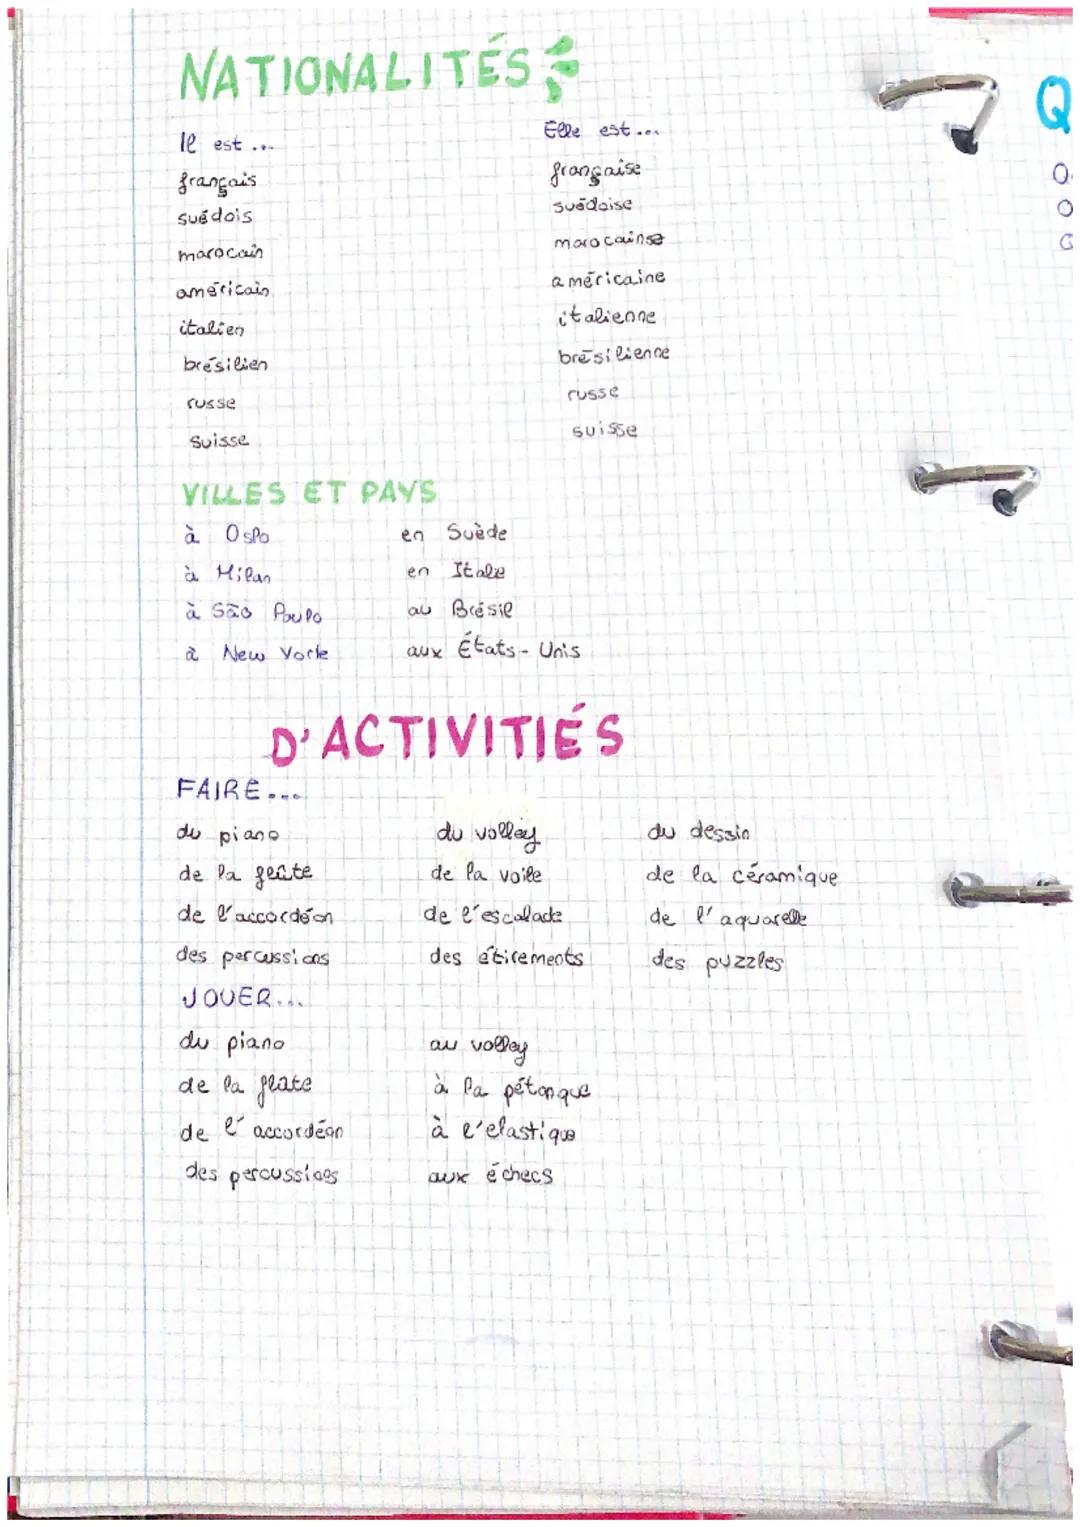 NATIONALITÉS
Il est ... Elle est ...
français française
suédois suédoise
marocain marocaine
américain américaine
italien italienne
brésilien brésilienne
russe russe
suisse suisse
VILLES ET PAYS
à Oslo en Suède
à Milan en Italie
à São Paulo au Brésil
à New York aux États-Unis
D'ACTIVITIÉS
FAIRE...
du piano du volley du dessin
de la flûte de la voile de la céramique
de l'accordéon de l'escalade de l'aquarelle
des percussions des étirements des puzzles
JOUER...
du piano au volley
de la flûte à la pétanque
de l'accordéon à l'elastique
des percussions aux échecs
Q